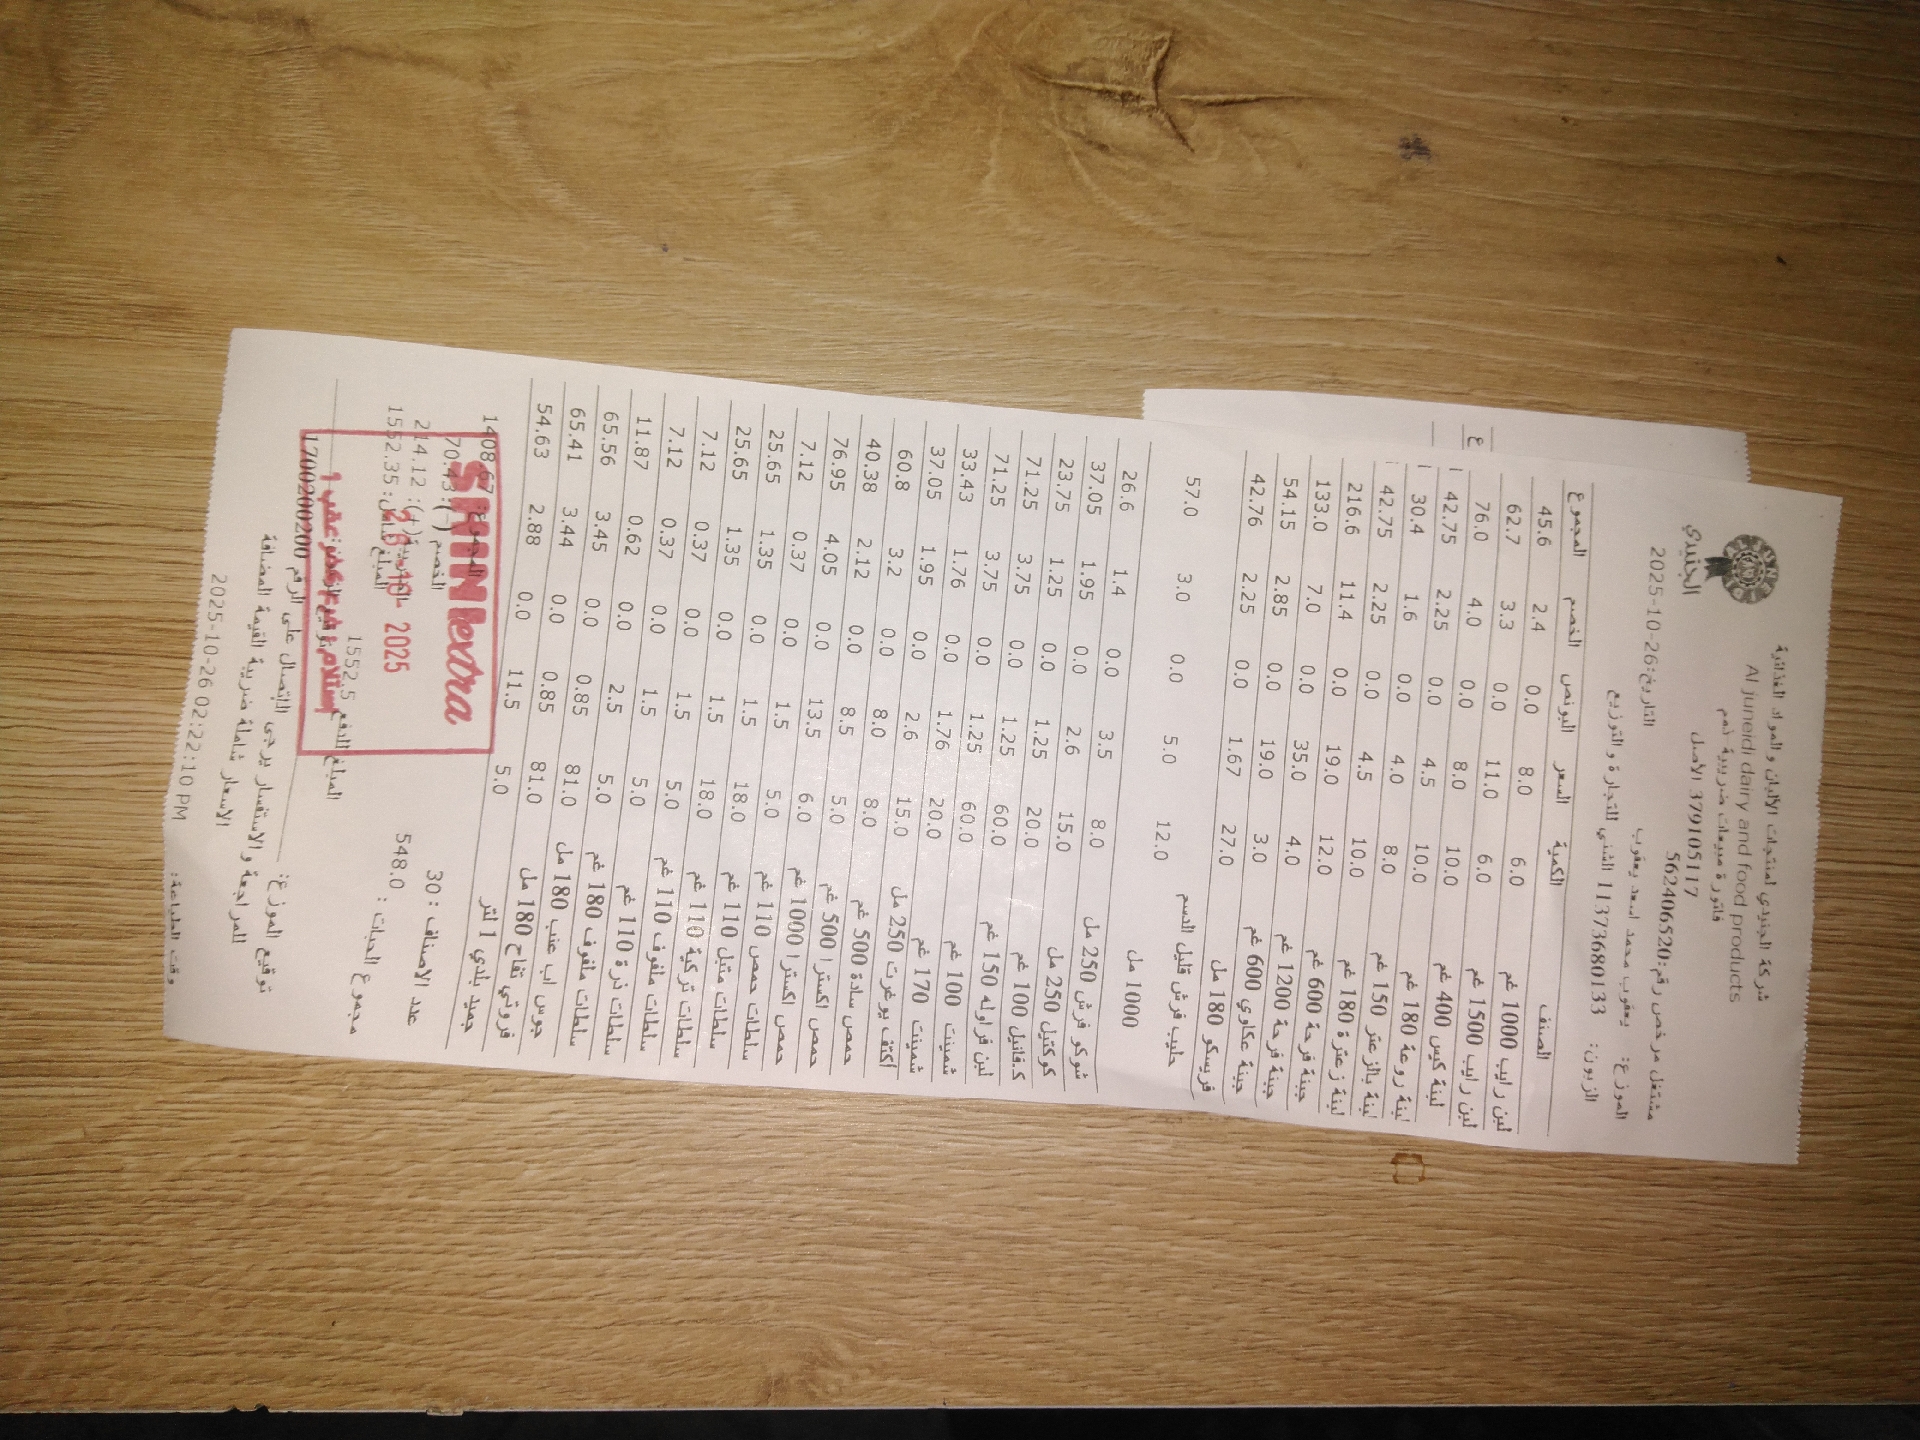 شركة الجنيدي لمنتجات الألبان و المواد الغذائية
Al juneidi dairy and food products
فاتورة مبيعات ضريبية رقم
379105117 الاصل
الجنيدي
مشتغل مرخص رقم:562406520
التاريخ:26-10-2025
الموزع: يعقوب محمد اسعد يعقوب
الزبون: 1137368013 الشني للتجارة و التوزيع
الصنف الكمية السعر البونص الخصم المجموع
لبن رايب 1000 غم 6.0 8.0 0.0 2.4 45.6
لبن رايب 1500 غم 6.0 11.0 0.0 3.3 62.7
لبنة كيس 400 غم 10.0 8.0 0.0 4.0 76.0
لبنة روعة 180 غم 10.0 4.5 0.0 2.25 42.75
لبنة بالزعتر 150 غم 8.0 4.0 0.0 1.6 30.4
لبنة زعترة 180 غم 10.0 4.5 0.0 2.25 42.75
جبنة فرحة 600 غم 12.0 19.0 0.0 11.4 216.6
جبنة فرحة 1200 غم 4.0 35.0 0.0 7.0 133.0
جبنة عكاوي 600 غم 3.0 19.0 0.0 2.85 54.15
فريسكو 180 مل 27.0 1.67 0.0 2.25 42.76
حليب فرش قليل الدسم 12.0 5.0 0.0 3.0 57.0
1000 مل
شوكو فرش 250 مل 8.0 3.5 0.0 1.4 26.6
كوكتيل 250 مل 15.0 2.6 0.0 1.95 37.05
كـفانيل 100 غم 20.0 1.25 0.0 1.25 23.75
لبن فراوله 150 غم 60.0 1.25 0.0 3.75 71.25
شمينت 100 غم 60.0 1.25 0.0 3.75 71.25
شمينت 170 غم 20.0 1.76 0.0 1.76 33.43
أكتف يوغرت 250 مل 15.0 2.6 0.0 1.95 37.05
حمص سادة 500 غم 8.0 8.0 0.0 3.2 60.8
حمص اكسترا 500 غم 5.0 8.5 0.0 2.12 40.38
حمص اكسترا 1000 غم 6.0 13.5 0.0 4.05 76.95
سلطات حمص 110 غم 5.0 1.5 0.0 0.37 7.12
سلطات متبل 110 غم 18.0 1.5 0.0 1.35 25.65
سلطات تركية 110 غم 18.0 1.5 0.0 1.35 25.65
سلطات ملفوف 110 غم 5.0 1.5 0.0 0.37 7.12
سلطات ذرة 110 غم 5.0 1.5 0.0 0.37 7.12
سلطات ملفوف 180 غم 5.0 2.5 0.0 0.62 11.87
جوس اب عنب 180 مل 81.0 0.85 0.0 3.45 65.56
فروتي تفاح 180 مل 81.0 0.85 0.0 3.44 65.41
جميد بلدي 1 لتر 5.0 11.5 0.0 2.88 54.63
المجموع: 1408.67
عدد الاصناف : 30 الخصم (-): 70.43
مجموع الحبات : 548.0 الضريبة(+): 214.12
المبلغ شامل: 1552.35
المبلغ للدفع 1552.5
SHINI extra
26-10-2025
توقيع الموزع:
للمراجعة و الاستفسار يرجى الاتصال على الرقم 1700200200
الاسعار شاملة ضريبة القيمة المضافة
وقت الطباعة: 2025-10-26 02:22:10 PM